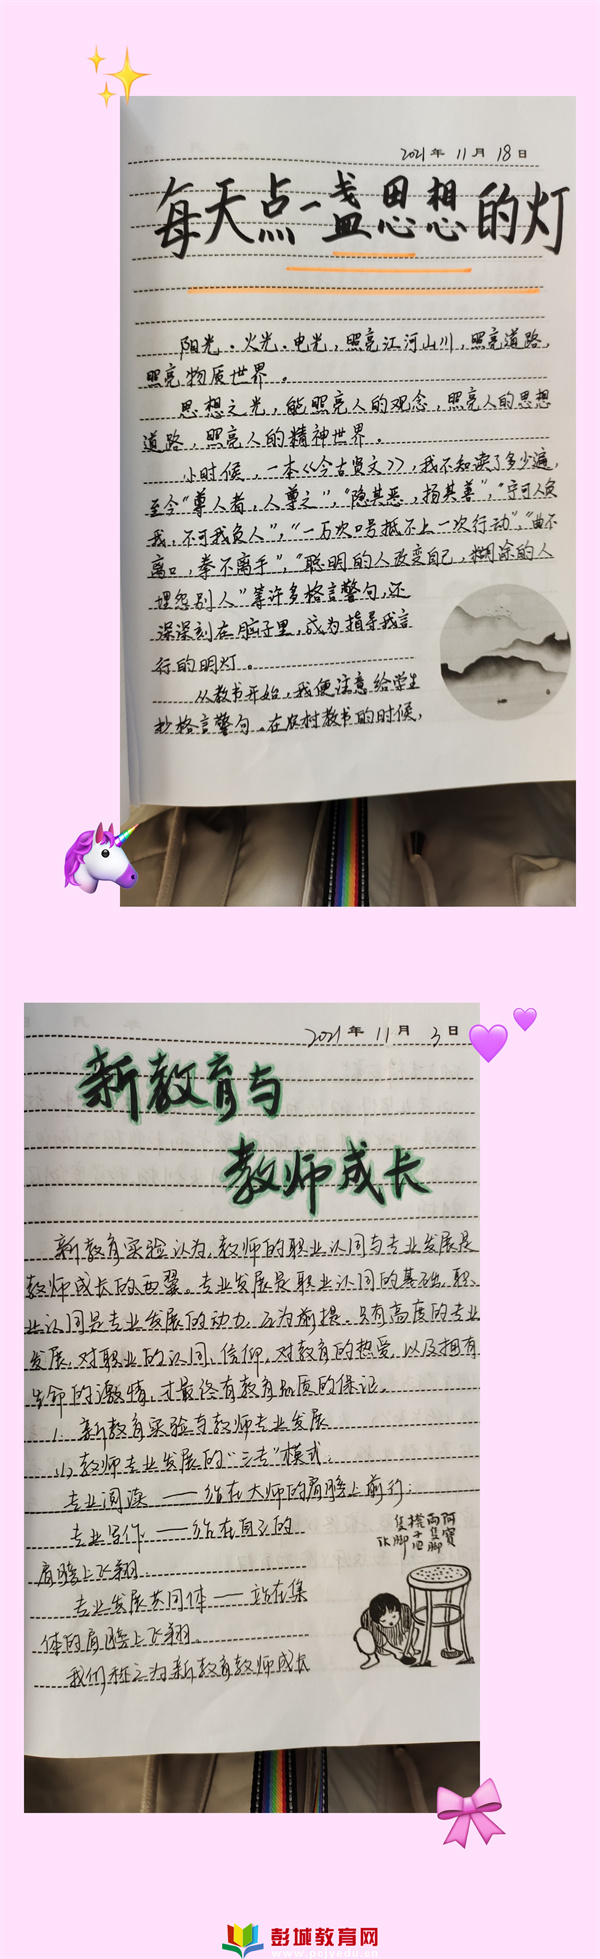 2021年 11月 18日
每天点一盏思想的灯
阳光、火光、电光,照亮江河山川,照亮道路,
照亮物质世界。
思想之光,能照亮人的观念,照亮人的思想
道路,照亮人的精神世界。
小时候,一本《今古贤文》,我不知读了多少遍,
至今“尊人者,人尊之”,“隐其恶,扬其善”,“宁可人负
我,不可我负人”,“一万次口号抵不上一次行动”,“曲不
离口,拳不离手”,“聪明的人改变自己,糊涂的人
埋怨别人”等许多格言警句,还
深深刻在脑子里,成为指导我言
行的明灯。
从教书开始,我便注意给学生
抄格言警句。在农村教书的时候,
2021年 11月 3日
新教育与
教师成长
新教育实验认为,教师的职业认同与专业发展是
教师成长的两翼。专业发展是职业认同的基础,职
业认同是专业发展的动力,互为前提。只有高度的专业
发展,对职业的认同、信仰,对教育的热爱,以及拥有
生命的激情,才最终有教育品质的保证。
1. 新教育实验与教师专业发展
(1)教师专业发展的“三专”模式:
专业阅读——站在大师的肩膀上前行;
专业写作——站在自己的
肩膀上飞翔;
专业发展共同体——站在集
体的肩膀上飞翔。
我们称之为新教育教师成长
阿寶
兩隻腳
櫈子四
隻腳
彭城教育网
www.pcjyedu.cn